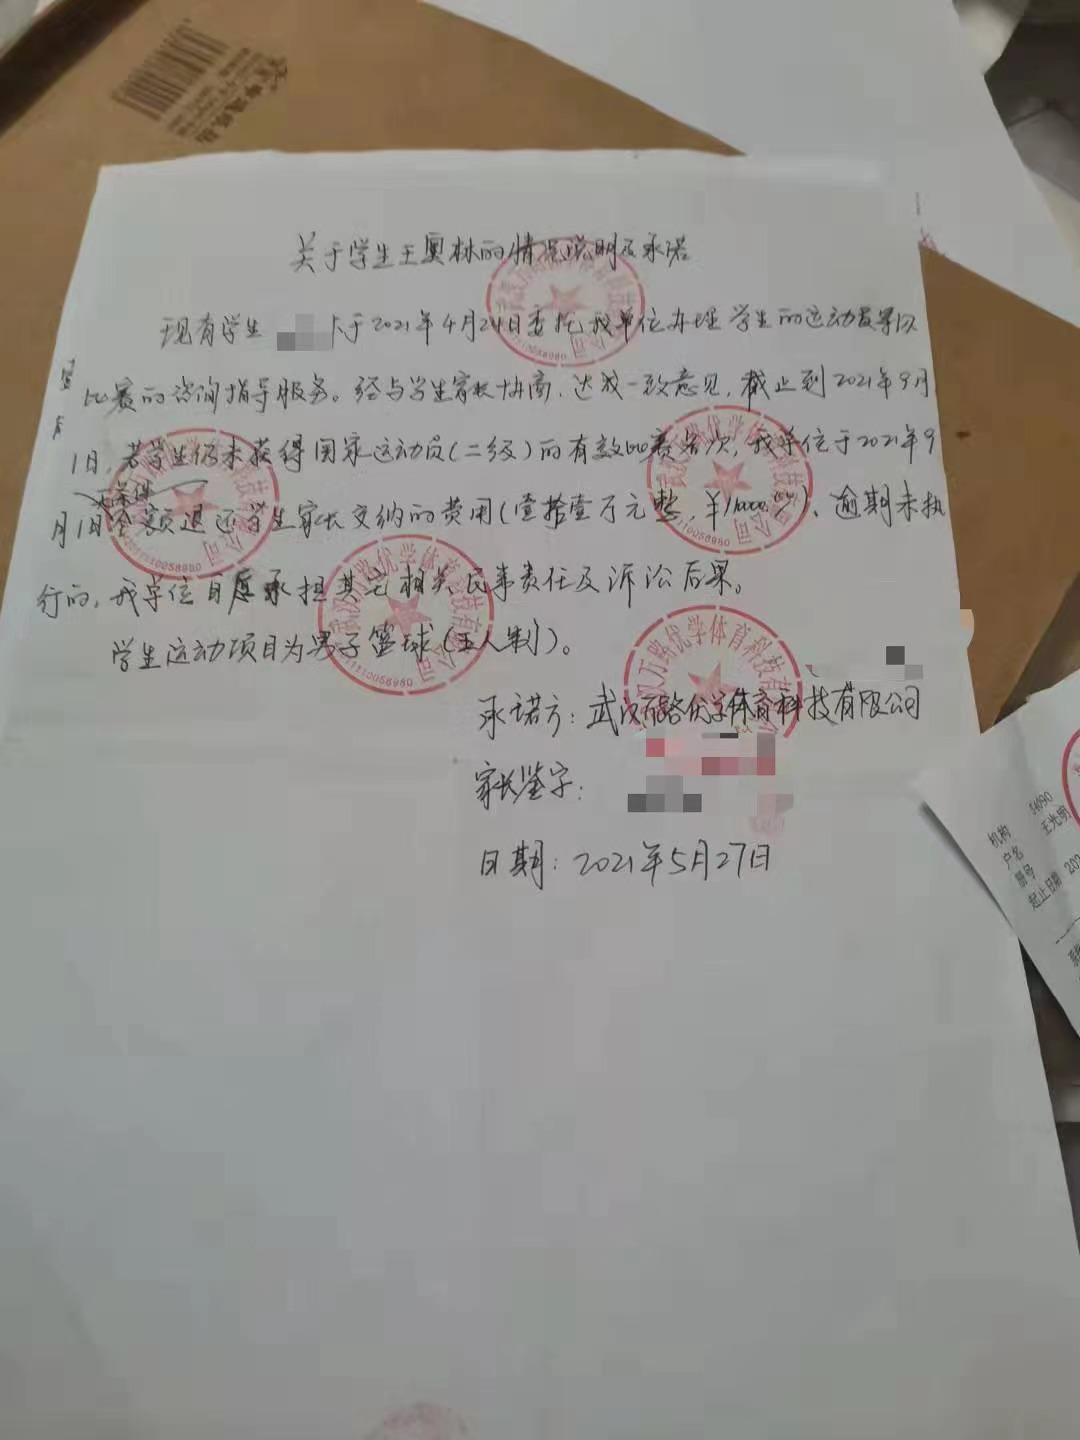 关于学生王奥林的情况说明及承诺
现有学生 于2021年4月24日委托我单位办理学生的运动员等级
比赛的咨询指导服务。经与学生家长协商,达成一致意见,截止到2021年9月
1日,若学生仍未获得国家运动员(二级)的有效比赛名次,我单位于2021年9
无条件
月1日全额退还学生家长交纳的费用(壹拾壹万元整,¥110000.00)、逾期未执
行的,我单位自愿承担其它相关民事责任及诉讼后果。
学生运动项目为男子篮球(五人制)。
承诺方:武汉万路优学体育科技有限公司
家长鉴字:
日期:2021年5月27日
武汉万路优学体育科技有限公司
机构 54090
户名 王光明
册号
起止日期 202